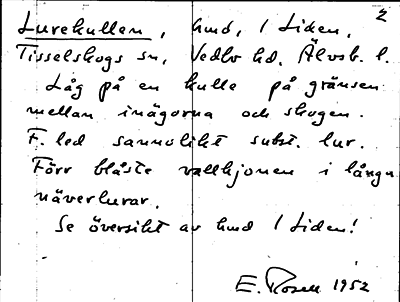 2
Lurekullen, hmd, 1 Liden,
Tisselskogs sn, Vedbo hd. Älvsb. l.
Låg på en kulle på gränsen
mellan inägorna och skogen.
F. led sannolikt subst. lur.
Förr blåste vallhjonen i långa
näverlurar.
Se översikt av hmd 1 Liden!
E. Rosell 1952